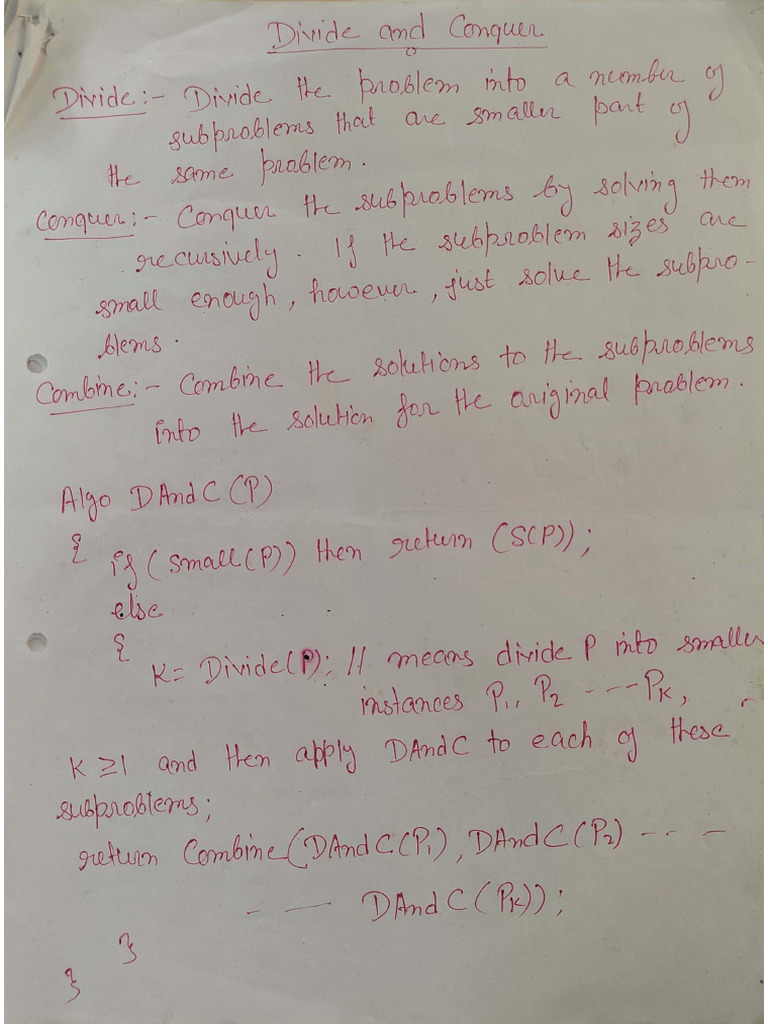 Divide and Conquer
Divide:- Divide the problem into a number of
subproblems that are smaller part of
the same problem.
Conquer:- Conquer the subproblems by solving them
recursively. If the subproblem sizes are
small enough, however, just solve the subpro-
blems.
Combine:- Combine the solutions to the subproblems
into the solution for the original problem.
Algo DAndC (P)
{
if (small(P)) then return (S(P));
else
{
K= Divide(P); // means divide P into smaller
instances P1, P2 - - - - PK,
K ≥1 and then apply DAndC to each of these
subproblems;
return Combine(DAndC(P1), DAndC(P2) - - - -
- - - DAndC(PK));
}
}